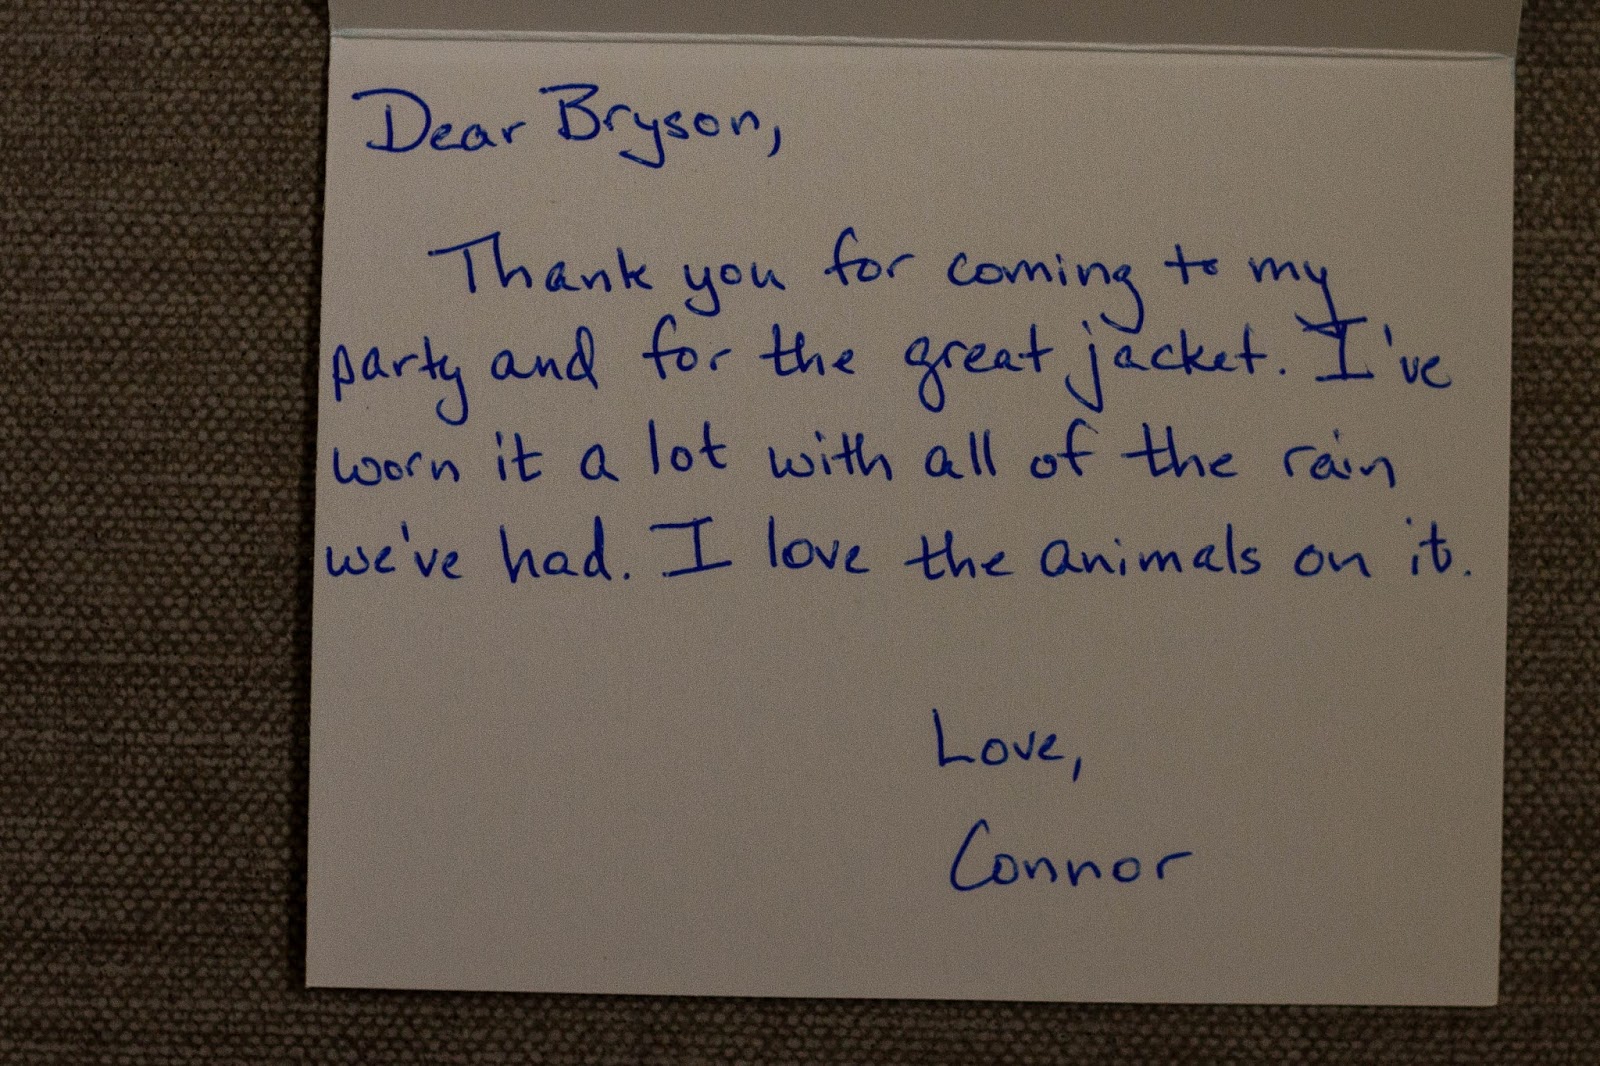 Dear Bryson,
Thank you for coming to my
party and for the great jacket. I've
worn it a lot with all of the rain
we've had. I love the animals on it.
Love,
Connor